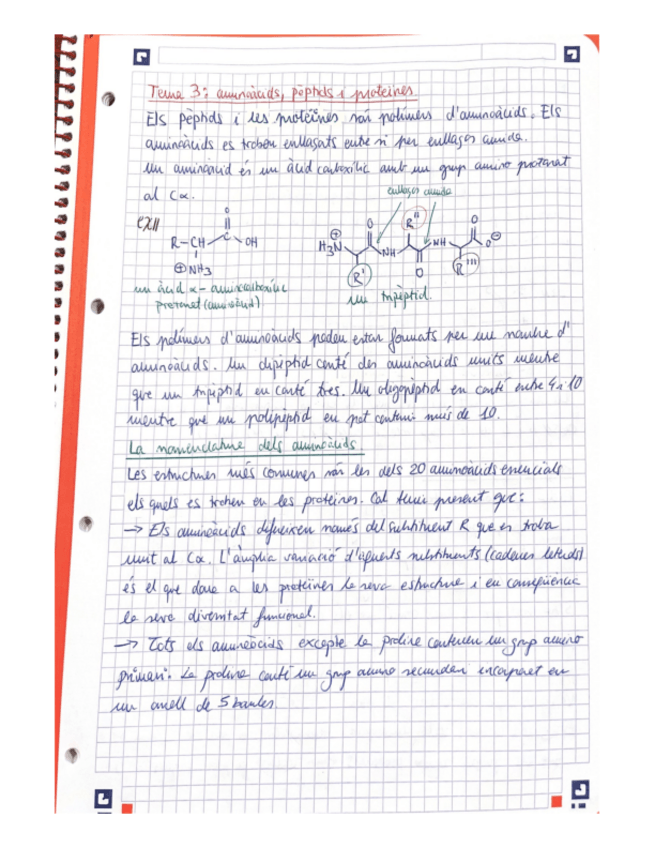 Tema 3: aminoàcids, pèptids i proteïnes
Els pèptids i les proteïnes són polímers d'aminoàcids. Els
aminoàcids es troben enllaçats entre si per enllaços amida.
Un aminoàcid és un àcid carboxílic amb un grup amino protonat
al Cα.
enllaços amida
EX//
O
R-CH C OH
⊕NH3
un àcid α-aminocarboxílic
protonat (aminoàcid)
H3N⊕ O R'' O
NH NH O⊖
R' O R'''
un tripèptid.
Els polímers d'aminoàcids poden estar formats per un nombre d'
aminoàcids. Un dipèptid conté dos aminoàcids units mentre
que un tripèptid en conté tres. Un oligopèptid en conté entre 4 i 10
mentre que un polipèptid en pot contenir més de 10.
La nomenclatura dels aminoàcids
Les estructures més comunes són les dels 20 aminoàcids essencials
els quals es troben en les proteïnes. Cal tenir present que:
→ Els aminoàcids difereixen només del substituent R que es troba
unit al Cα. L'àmplia variació d'aquests substituents (cadenes laterals)
és el que dona a les proteïnes la seva estructura i en conseqüència
la seva diversitat funcional.
→ Tots els aminoàcids excepte la prolina contenen un grup amino
primari. La prolina conté un grup amino secundari incorporat en
un anell de 5 baules